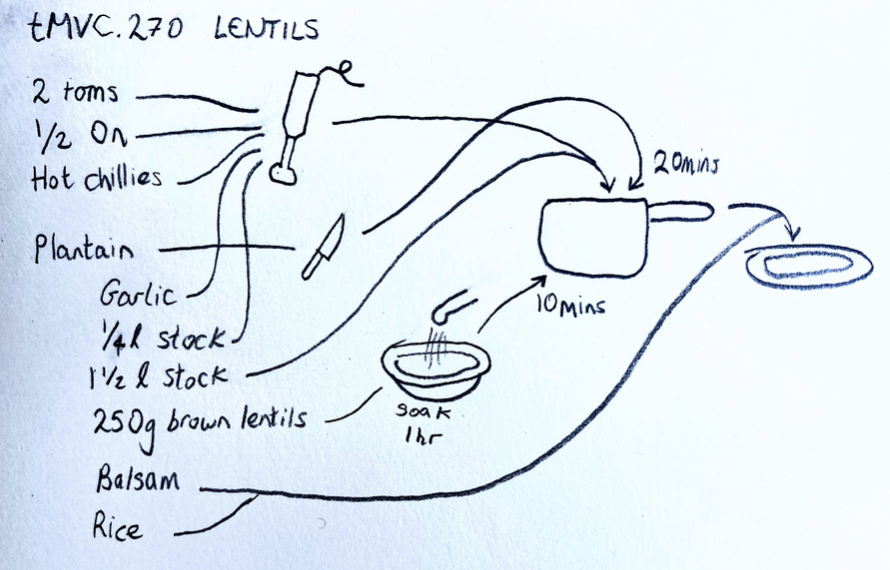 tMVC.270 LENTILS
2 toms
1/2 On
Hot chillies
Plantain
Garlic
1/4 l stock
1 1/2 l stock
250g brown lentils
Balsam
Rice
soak
1hr
10mins
20mins